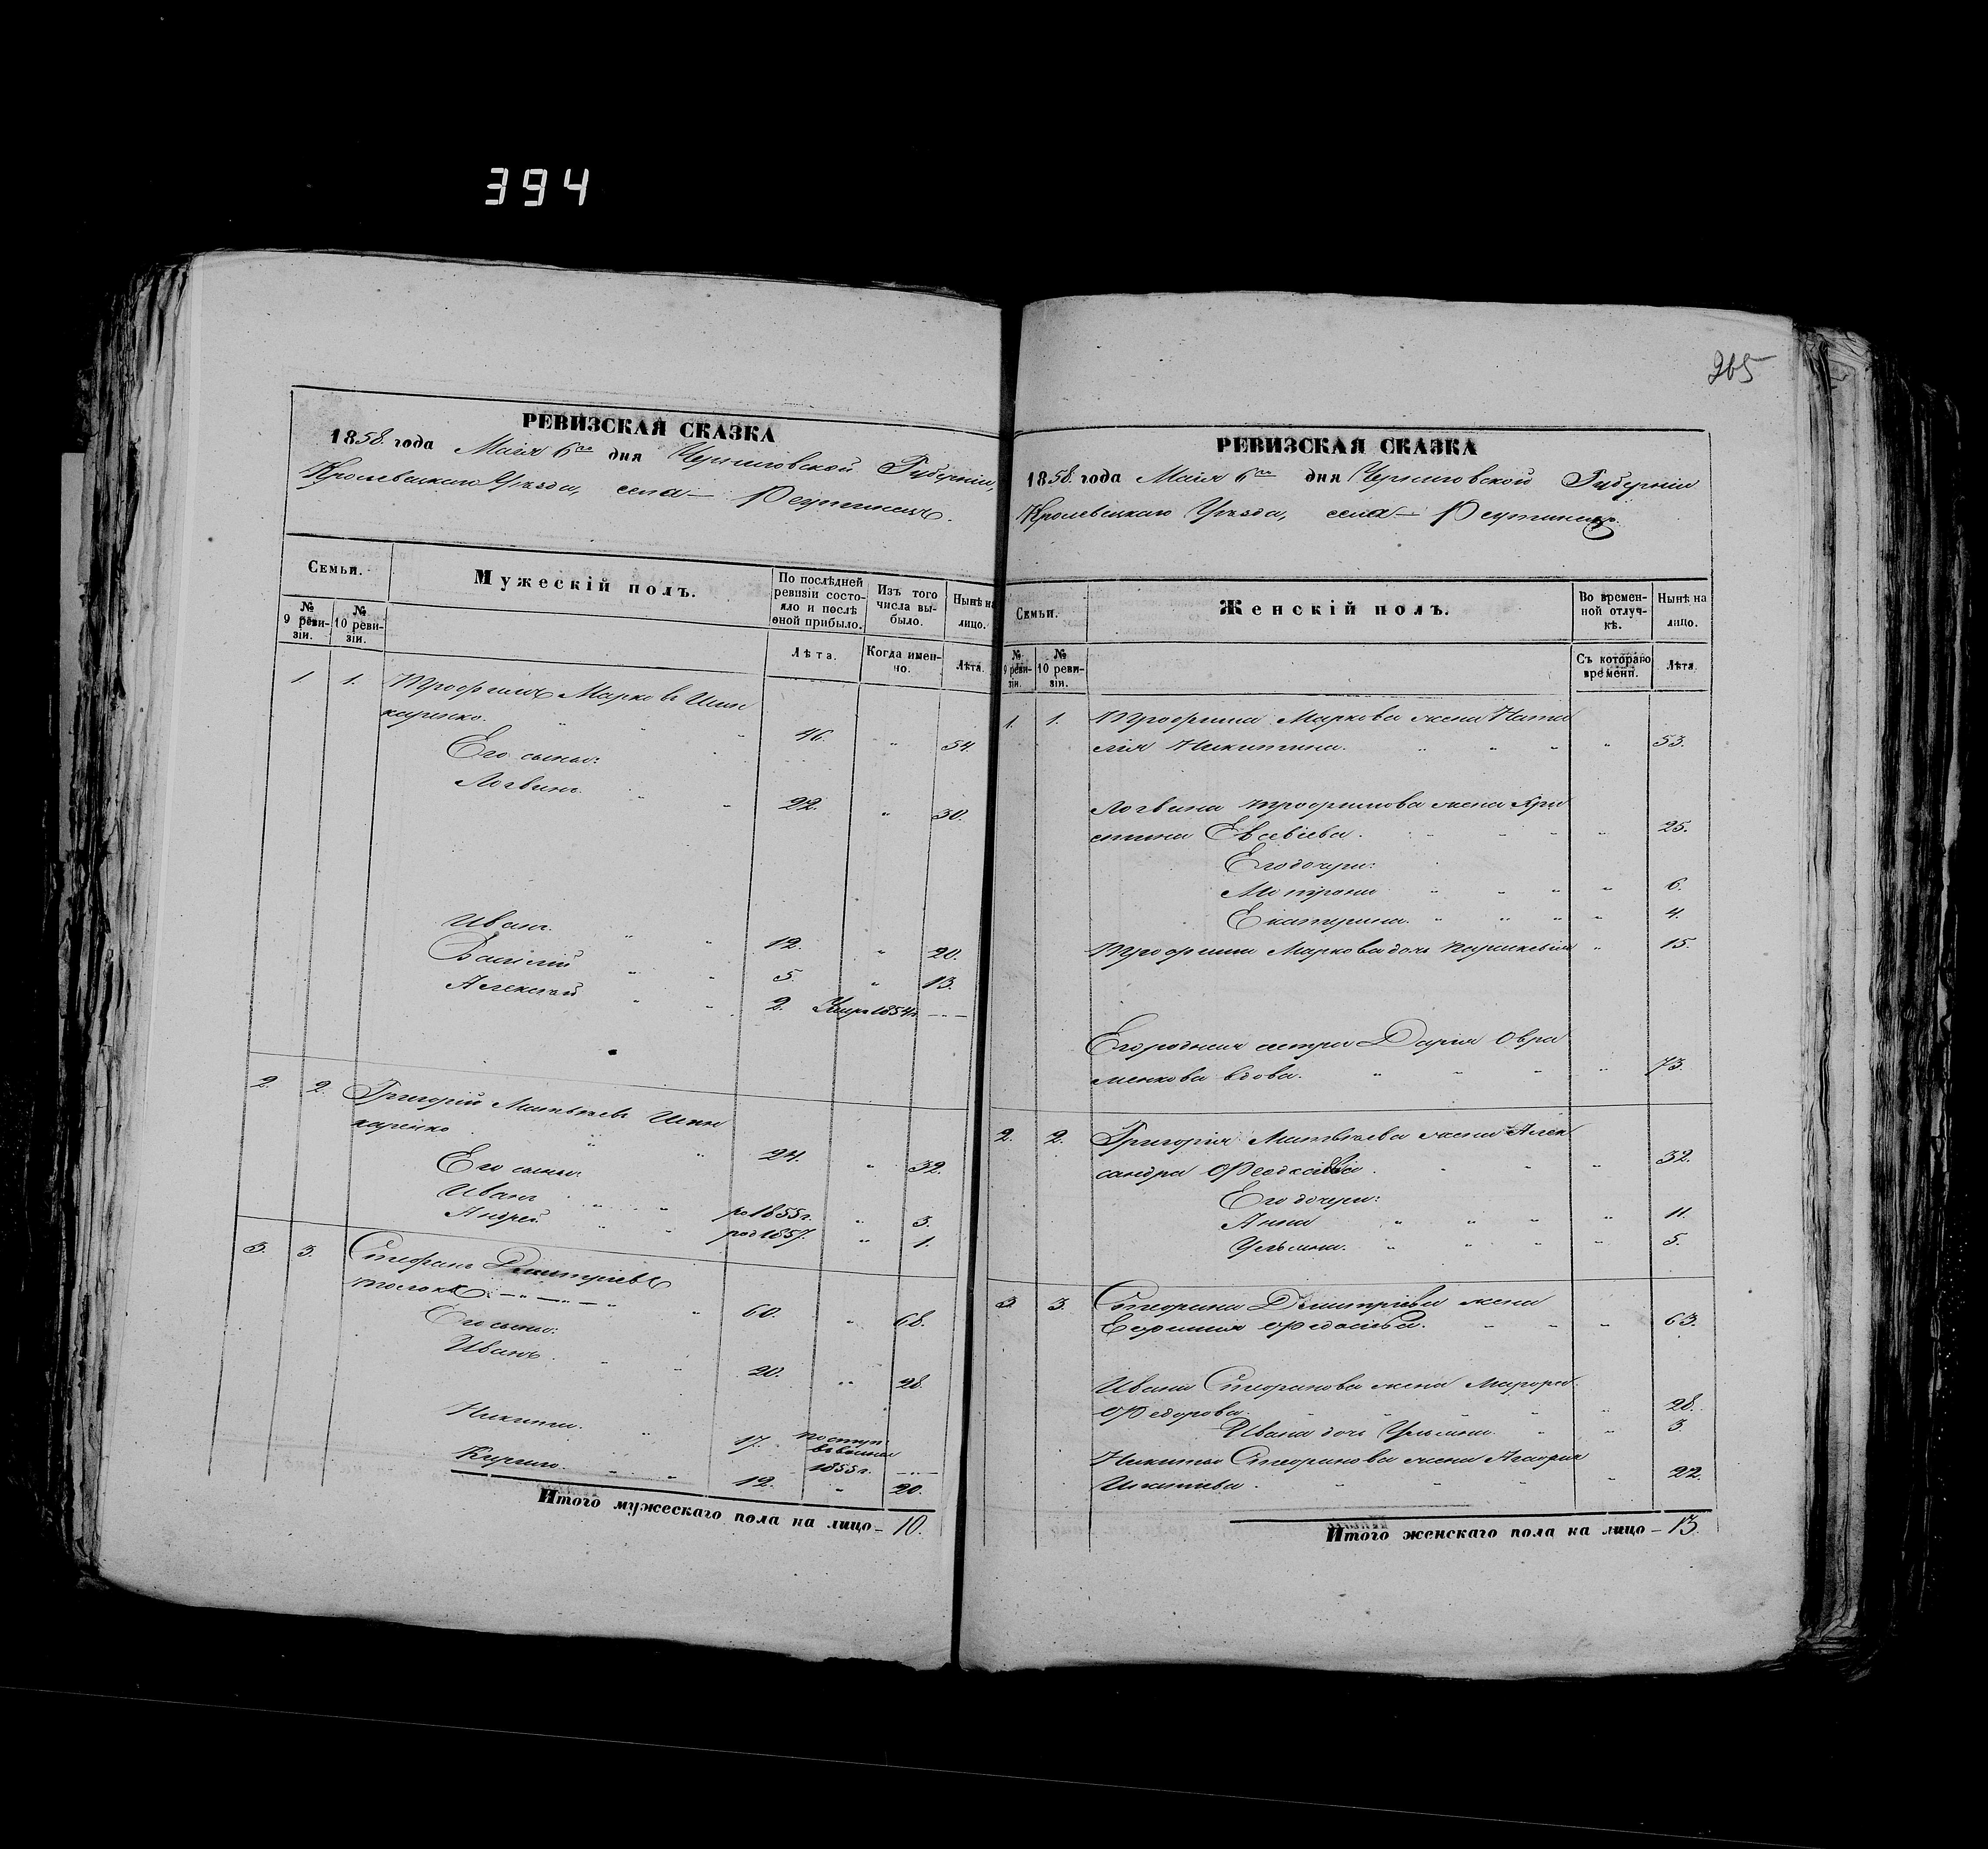 394
РЕВИЗСКАЯ СКАЗКА
1858 года Мая 6го дня Черниговской Губерніи,
Кролевецкаго Уѣзда, села — Реутинецъ.
Семьи.
Мужескій полъ.
По послѣдней ревизіи состояло и послѣ оной прибыло.
Изъ того числа выбыло.
Нынѣ на лицо.
№ 9 ревизіи.
№ 10 ревизіи.
Лѣта.
Когда именно.
Лѣта.
1 1. Трофимъ Марковъ Шин
каренко. 46. " 54.
Его сыны:
Логвинъ. 22. " 30.
Иванъ. 12. " 20.
Василій 5. " 13.
Алексѣй 2. Умре 1854г. ---
2. 2. Григорій Матвѣевъ Шин
каренко 24. " 32.
Его сыны:
Иванъ ро 1855г. " 3.
Андрей род 1857. " 1.
3. 3. Стефанъ Дмитріевъ
60. " 68.
Его сыны:
Иванъ. 20. " 28.
Никита. 17. поступ.
1855г. ---
12. " 20.
Итого мужескаго пола на лицо – 10.
265
РЕВИЗСКАЯ СКАЗКА
1858 года Мая 6го дня Черниговской Губерніи
Кролевецкаго Уѣзда, села — Реутинецъ.
Семьи.
Женскій полъ.
Во временной отлучкѣ.
Нынѣ на лицо.
№ 9 ревизіи.
№ 10 ревизіи.
Съ котораго времени.
Лѣта
1. 1. Трофима Маркова жена Ната
лія Никитина. " 53.
Логвина Трофимова жена Хри
стина Евсевіева. " 25.
Его дочери:
Матрона " 6.
Екатерина. " 4.
Трофима Маркова дочь Параскевія " 15.
Его родная сестра Дарія Овра
менкова вдова. " 73.
2. 2. Григорія Матвѣева жена Алек
сандра " 32.
Его дочери:
Анна " 11.
Ульяна. " 5.
3. 3. Стефана Дмитріева жена
Евфимія Федосіева. " 63.
Ивана Стефанова жена
Федорова. " 28.
Ивана дочь Ульяна. " 3.
Никиты Стефанова жена Агафія
" 22.
Итого женскаго пола на лицо – 13.